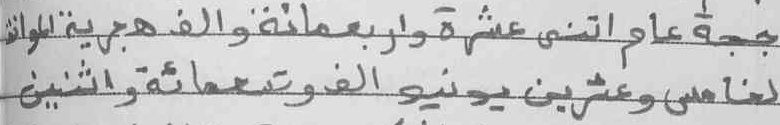 حجة عام اتنى عشرة واربعمائة والف هجرية الموافق
لخامس وعشرين يونيو الف وتسعمائة واثنين